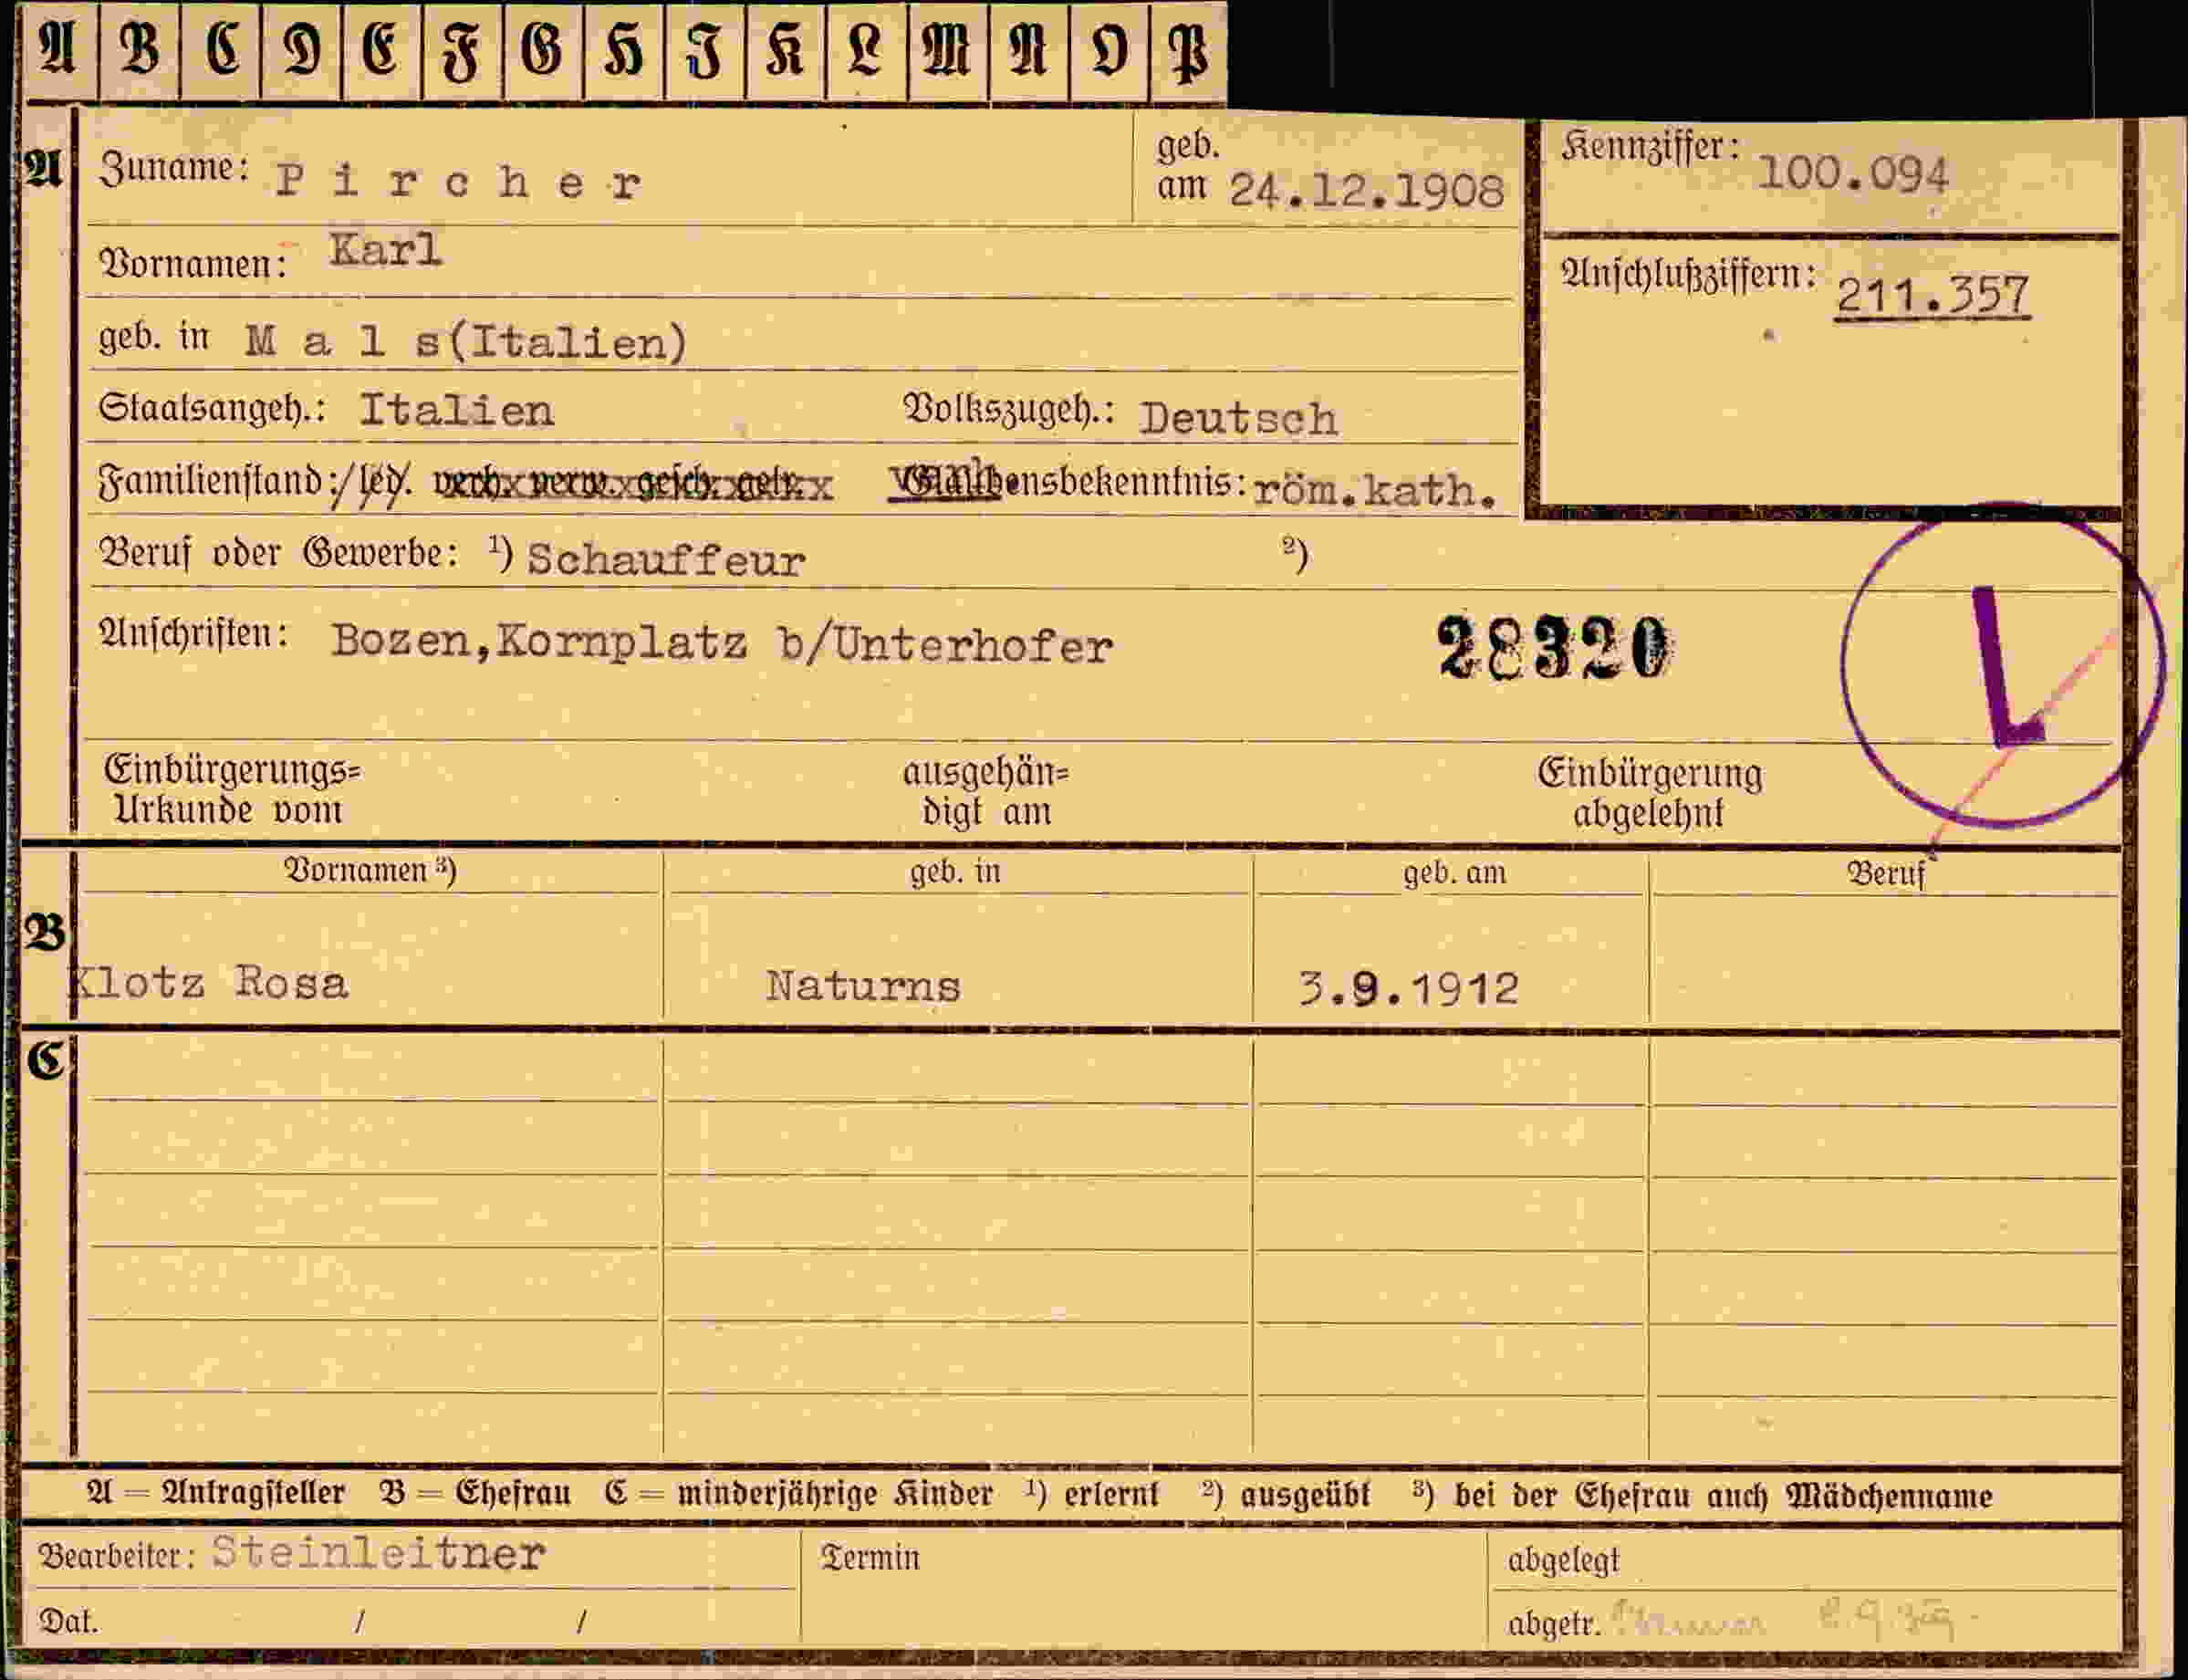 A B C D E F G H I K L M N O P
A Zuname: Pircher geb. am 24.12.1908 Kennziffer: 100.094
Vornamen: Karl Anschlußziffern: 211.357
geb. in Mals(Italien)
Staatsangeh.: Italien Volkszugeh.: Deutsch
Familienstand: / led. verh. verw. gesch. getr. verh Glaubensbekenntnis: röm.kath.
Beruf oder Gewerbe: 1) Schauffeur 2)
Anschriften: Bozen,Kornplatz b/Unterhofer 28320 L
Einbürgerungs= ausgehän= Einbürgerung
Urkunde vom digt am abgelehnt
Vornamen 3) geb. in geb. am Beruf
B
Klotz Rosa Naturns 3.9.1912
C
A = Antragsteller B = Ehefrau C = minderjährige Kinder 1) erlernt 2) ausgeübt 3) bei der Ehefrau auch Mädchenname
Bearbeiter: Steinleitner Termin abgelegt
Dat. / / abgetr.